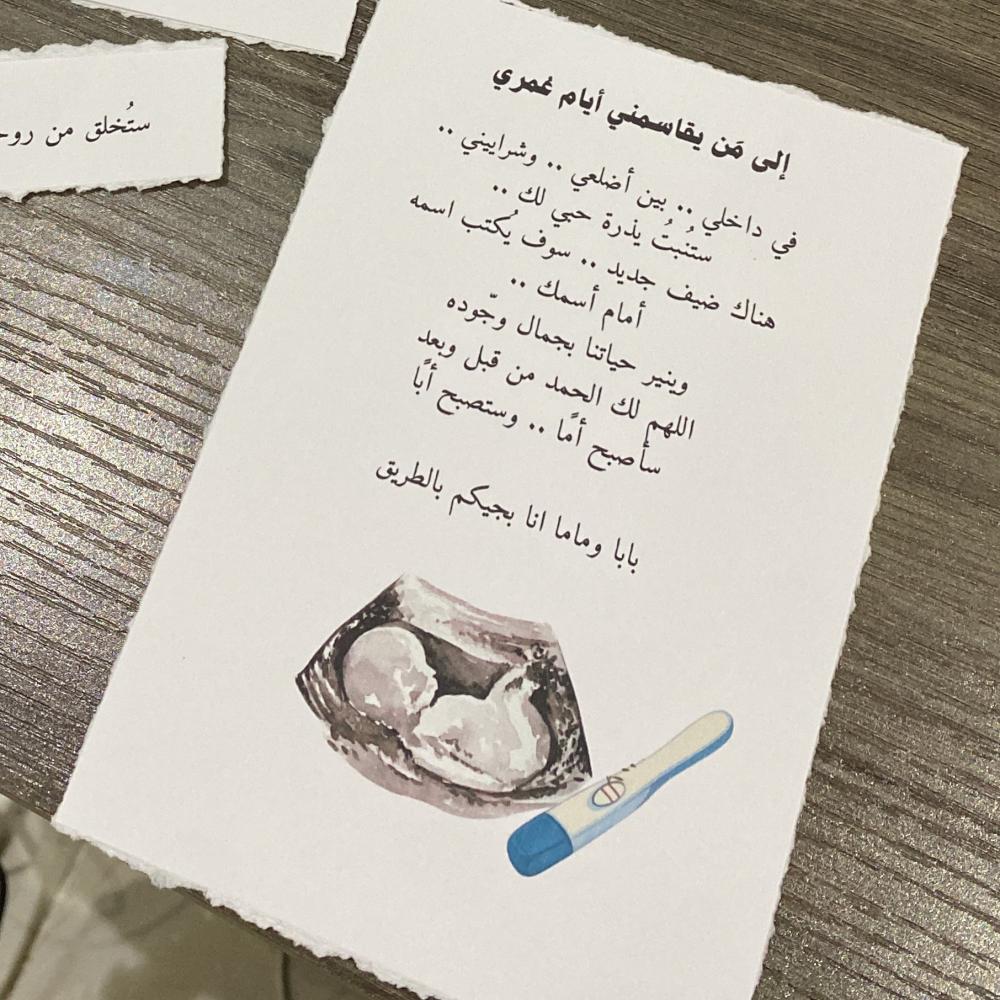 إلى مَن يقاسمني أيام عُمري
في داخلي .. بين أضلعي .. وشراييني ..
ستُنبتُ يذرة حبي لك ..
هناك ضيف جديد .. سوف يُكتب اسمه
أمام أسمك ..
وينير حياتنا بجمال وجّوده
اللهم لك الحمد من قبل وبعد
سأصبح أمًا .. وستصبح أبًا
بابا وماما انا بجيكم بالطريق
ستُخلق من